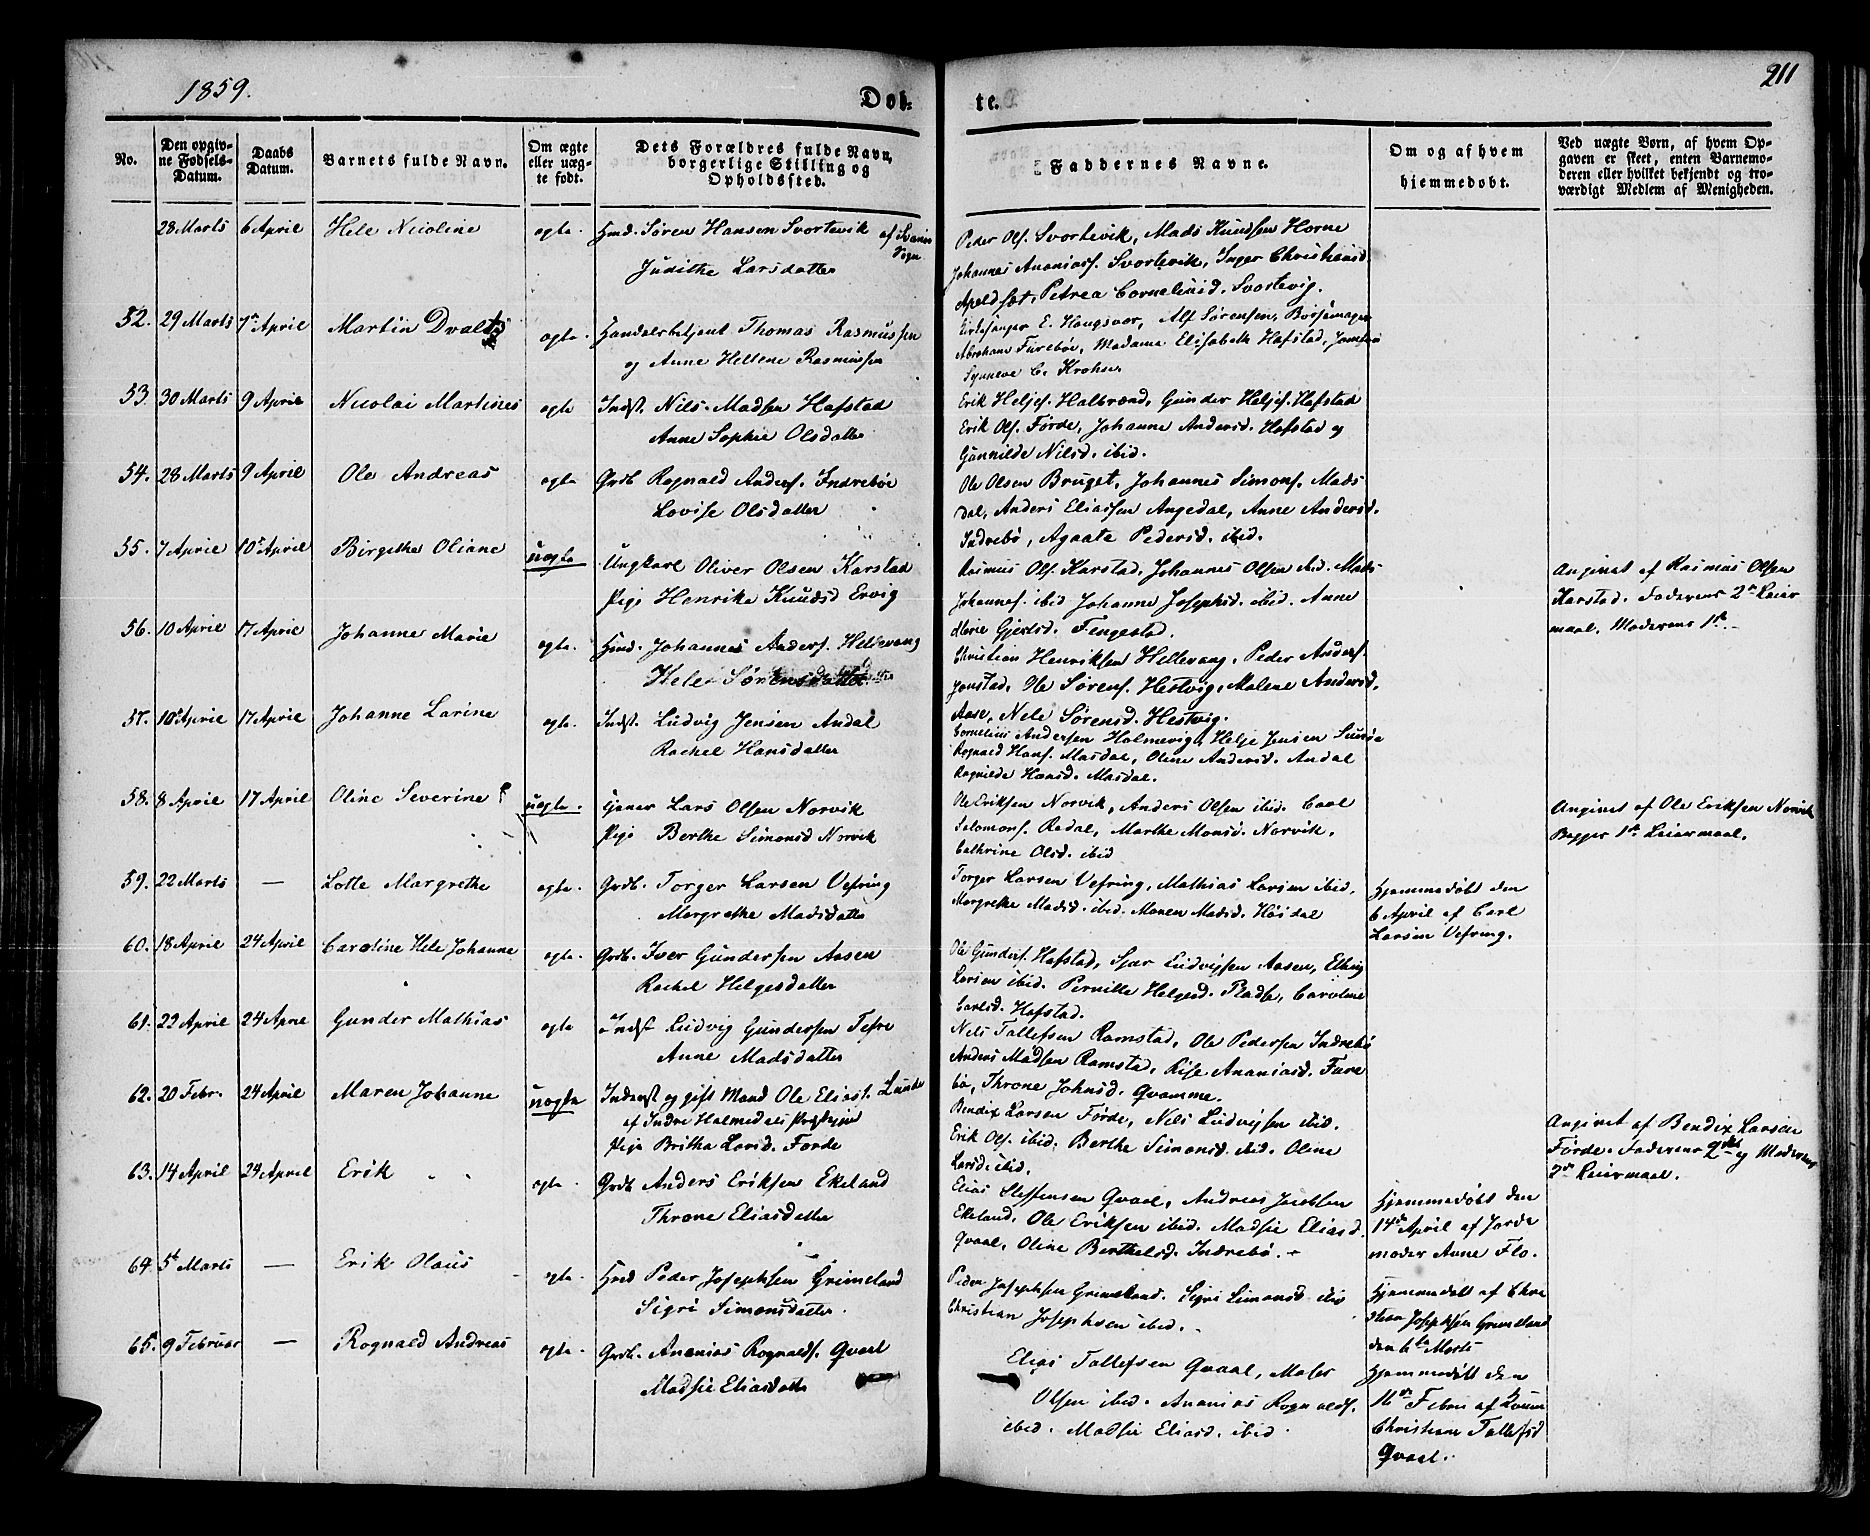 1859.
Døb-
te.
211
No.
Den opgiv-
ne Fødsels-
Datum.
Daabs
Datum.
Barnets fulde Navn.
Om ægte
eller uæg-
te født.
Dets Forældres fulde Navn,
borgerlige Stilling og
Opholdssted.
Faddernes Navne.
Om og af hvem
hjemmedøbt.
Ved uægte Børn, af hvem Op-
gaven er skeet, enten Barnemo-
deren eller hvilket bekjendt og tro-
værdigt Medlem af Menigheden.
28 Marts 6 April Hele Nicoline ægte. Hmd. Søren Hansen Svortevik af
Judithe Larsdatter
Peder Ols. Svortevik, Mads Knudsen Horne
Johannes Ananias. Svortevik, Inger Christiansd.
Apeldsæt, Petrea Corneliusd. Svortevig.
52. 29 Marts 7de April Martin ægte Handelsbetjent Thomas Rasmussen
og Anne Hellene Rasmussen
Kirkesanger E. Haugsvær, Alf Sørensen, Bøssemager
Abraham Furebøe, Madame Elisabeth Hafstad, Jomfru
Synneve C. Krohn
53. 30 Marts 9 April Nicolai Martines ægte Indst. Nils Madsen Hafstad
Anne Sophie Olsdatter
Erik Heljes. Halbrænd, Gunder Heljes. Hafstad
Erik Ols. Førde, Johanne Andersd. Hafstad og
Gunnilde Nilsd. ibid.
54. 28 Marts 9 April Ole Andreas ægte Grdb Ragnald Anders. Indrebøe
Lovise Olsdatter
Ole Olsen Bruget, Johannes Simons. Mads
dal, Anders Eliassen Angedal, Anne Andersd.
Indrebø, Agaate Pedersd. ibid.
55. 7 April 10de April Birgethe Oliane uægte Ungkarl Oliver Olsen Karstad
Pige Henrike Knudsd Ervig
Rasmus Ols. Karstad, Johannes Olsen ibid. Mads
Johannes. ibid Johanne Josephsd. ibid. Anne
Marie Gjertsd. Fengestad.
Angivet af Rasmus Olsen
Karstad. Faderens 2det Leier
maal. Moderens 1ste
56. 10 April 17 April Johanne Marie ægte. Hmd. Johannes Anders. Hellevang
Hele Sørensdatter
Christian Henriksen Hellevang, Peder Anders.
Jonstad, Ole Sørens. Hestvig, Malene Andersd.
Aase, Nele Sørensd. Hestvig.
57. 10de April 17 April Johanne Larine ægte. Indst. Ludvig Jensen Andal
Rachel Hansdatter
Cornelius Andersen Holmevig, Helje Jensen Sunde
Rognald Hans. Masdal, Oline Andersd. Andal
Ragnilde Hansd. Masdal.
58. 8 April 17 April Oline Severine uægte. Tjener Lars Olsen Norvik
Pige Berthe Simonsd Norvik
Ole Eriksen Norvik, Anders Olsen ibid. Carl
Salomons. Rødal, Marthe Monsd. Norvik,
Cathrine Olsd. ibid
Angivet af Ole Eriksen Norvik
Begges 1ste Leiermaal.
59. 22 Marts — Lotte Margrethe ægte. Grdb. Torger Larsen Vefring
Margrethe Madsdatter
Torger Larsen Vefring, Mathias Larsen ibid.
Margrethe Madsd. ibid. Maren Madsd. Høidal
Hjemmedøbt den
6 April af Carl
Larsen Vefring.
60. 18 April 24 April Caroline Hele Johanne ægte. Grdb. Iver Gundersen Aasen
Rachel Helgesdatter
Ole Gunders. Hafstad, Sjur Ludvigsen Aasen, Elling
Larsen ibid. Pernille Helgesd. Pladse, Caroline
Carlsd. Hafstad.
61. 22 April 24 April Gunder Mathias ægte Indst Ludvig Gundersen Tefre
Anne Madsdatter
Nils Tallefsen Ramstad, Ole Pedersen Indrebø
Anders Madsen Ramstad, Rise Ananiasd. Fure
bø, Throne Johnsd. Qvamme.
62. 20 Febr. 24 April Maren Johanne uægte Inderst og gift Mand Ole Elias. Lunde
af Indre Holmedals Præstegjeld
Pige Britha Larsd. Førde
Bendix Larsen Førde, Nils Ludvigsen ibid.
Erik Ols. ibid. Berthe Simonsd. ibid. Oline
Larsd. ibid.
Angivet af Bendix Larsen
Førde. Faderens 2det og Moderens
2det Leiermaal.
63. 14 April 24 April Erik ægte. Grdb Anders Eriksen Ekeland
Throne Eliasdatter
Elias Steffensen Qvaal, Andreas Jacobsen
Ekeland, Ole Eriksen ibid. Madsie Eliasd.
Qvaal, Oline Berthelsd. Indrebø.
Hjemmedøbt den
14de April af Jorde
moder Anne Flo.
64. 5te Marts — Erik Olaus ægte. Hmd Peder Josephsen Grimeland
Sigri Simonsdatter.
Peder Josephsen Grimeland. Sigri Simonsd ibid
Christian Josephsen ibid.
Hjemmedøbt af Chri
stian Josephsen Grimeland
den 6te Marts
65. 9 Februar — Rognald Andreas ægte. Grdb. Ananias Rognalds. Qvaal
Madsie Eliasdatter
Elias Tallefsen Qvaal, Moses
Olsen ibid. Ananias Rognalds.
ibid. Madsie Eliasd. ibid.
Hjemmedøbt den
16de Febru af
Christiane Tallefsd
Qvaal.